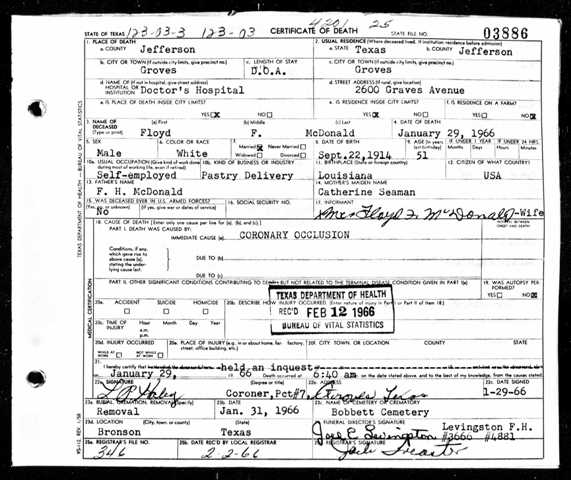 4201 25
STATE OF TEXAS 123-03-3 123-03 CERTIFICATE OF DEATH STATE FILE NO. 03886
1. PLACE OF DEATH 2. USUAL RESIDENCE (Where deceased lived. If institution: residence before admission)
a. COUNTY Jefferson a. STATE Texas b. COUNTY Jefferson
b. CITY OR TOWN (If outside city limits, give precinct no.) c. LENGTH OF STAY c. CITY OR TOWN (If outside city limits, give precinct no.)
Groves D.O.A. Groves
d. NAME OF (If not in hospital, give street address) d. STREET ADDRESS (If rural, give location)
HOSPITAL OR INSTITUTION Doctor's Hospital 2600 Graves Avenue
e. IS PLACE OF DEATH INSIDE CITY LIMITS? e. IS RESIDENCE INSIDE CITY LIMITS? f. IS RESIDENCE ON A FARM?
YES NO YES NO YES NO
3. NAME OF DECEASED (Type or print) (a) First (b) Middle (c) Last 4. DATE OF DEATH
Floyd F. McDonald January 29, 1966
5. SEX 6. COLOR OR RACE 7. Married Never Married Widowed Divorced 8. DATE OF BIRTH 9. AGE IF UNDER 1 YEAR IF UNDER 24 HRS.
Male White Sept.22,1914 51
10a. USUAL OCCUPATION 10b. KIND OF BUSINESS OR INDUSTRY 11. BIRTHPLACE (State or foreign country) 12. CITIZEN OF WHAT COUNTRY?
Self-employed Pastry Delivery Louisiana USA
13. FATHER'S NAME 14. MOTHER'S MAIDEN NAME
F. H. McDonald Catherine Seaman
15. WAS DECEASED EVER IN U.S. ARMED FORCES? 16. SOCIAL SECURITY NO. 17. INFORMANT
No Mrs Floyd F. McDonald-Wife
18. CAUSE OF DEATH [Enter only one cause per line for (a), (b), and (c).]
PART I. DEATH WAS CAUSED BY:
IMMEDIATE CAUSE (a) CORONARY OCCLUSION
Conditions, if any, which gave rise to above cause (a), stating the underlying cause last.
DUE TO (b)
DUE TO (c)
PART II. OTHER SIGNIFICANT CONDITIONS CONTRIBUTING TO DEATH BUT NOT RELATED TO THE TERMINAL DISEASE CONDITION GIVEN IN PART I(a) 19. WAS AUTOPSY PERFORMED?
YES NO
20a. ACCIDENT SUICIDE HOMICIDE 20b. DESCRIBE HOW INJURY OCCURRED. (Enter nature of injury in Part I or Part II of item 18)
TEXAS DEPARTMENT OF HEALTH
REC'D FEB 12 1966
BUREAU OF VITAL STATISTICS
20c. TIME OF INJURY Hour Month Day Year
a.m.
p.m.
20d. INJURY OCCURRED 20e. PLACE OF INJURY 20f. CITY, TOWN, OR LOCATION COUNTY STATE
WHILE AT WORK NOT WHILE AT WORK
21. I hereby certify held an inquest
January 29, 66 Death occurred at 6:40 am on the date stated above, and to the best of my knowledge, from the causes stated.
22a. SIGNATURE (Degree or title) 22b. ADDRESS 22c. DATE SIGNED
Coroner,Pct#7 Groves Texas 1-29-66
23a. BURIAL, CREMATION, REMOVAL (Specify) 23b. DATE 23c. NAME OF CEMETERY OR CREMATORY
Removal Jan. 31, 1966 Bobbett Cemetery
23d. LOCATION (City, town, or county) (State) 24. FUNERAL DIRECTOR'S SIGNATURE Levingston F.H.
Bronson Texas #3666 #4881
25a. REGISTRAR'S FILE NO. 25b. DATE REC'D BY LOCAL REGISTRAR 25c. REGISTRAR'S SIGNATURE
346 2-2-66
TEXAS DEPARTMENT OF HEALTH - BUREAU OF VITAL STATISTICS
MEDICAL CERTIFICATION